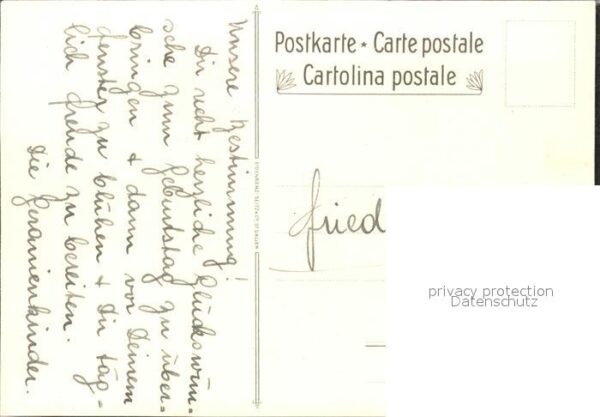 Unsere Bestimmung!
Dir recht herzliche Glückswün-
sche zum Geburtstag zu über-
bringen + dann vor Deinem
Fenster zu blühen + Dir täg-
lich Freude zu bereiten.
Die Geranienkinder.
Postkarte * Carte postale
Cartolina postale
Fried
privacy protection
Datenschutz